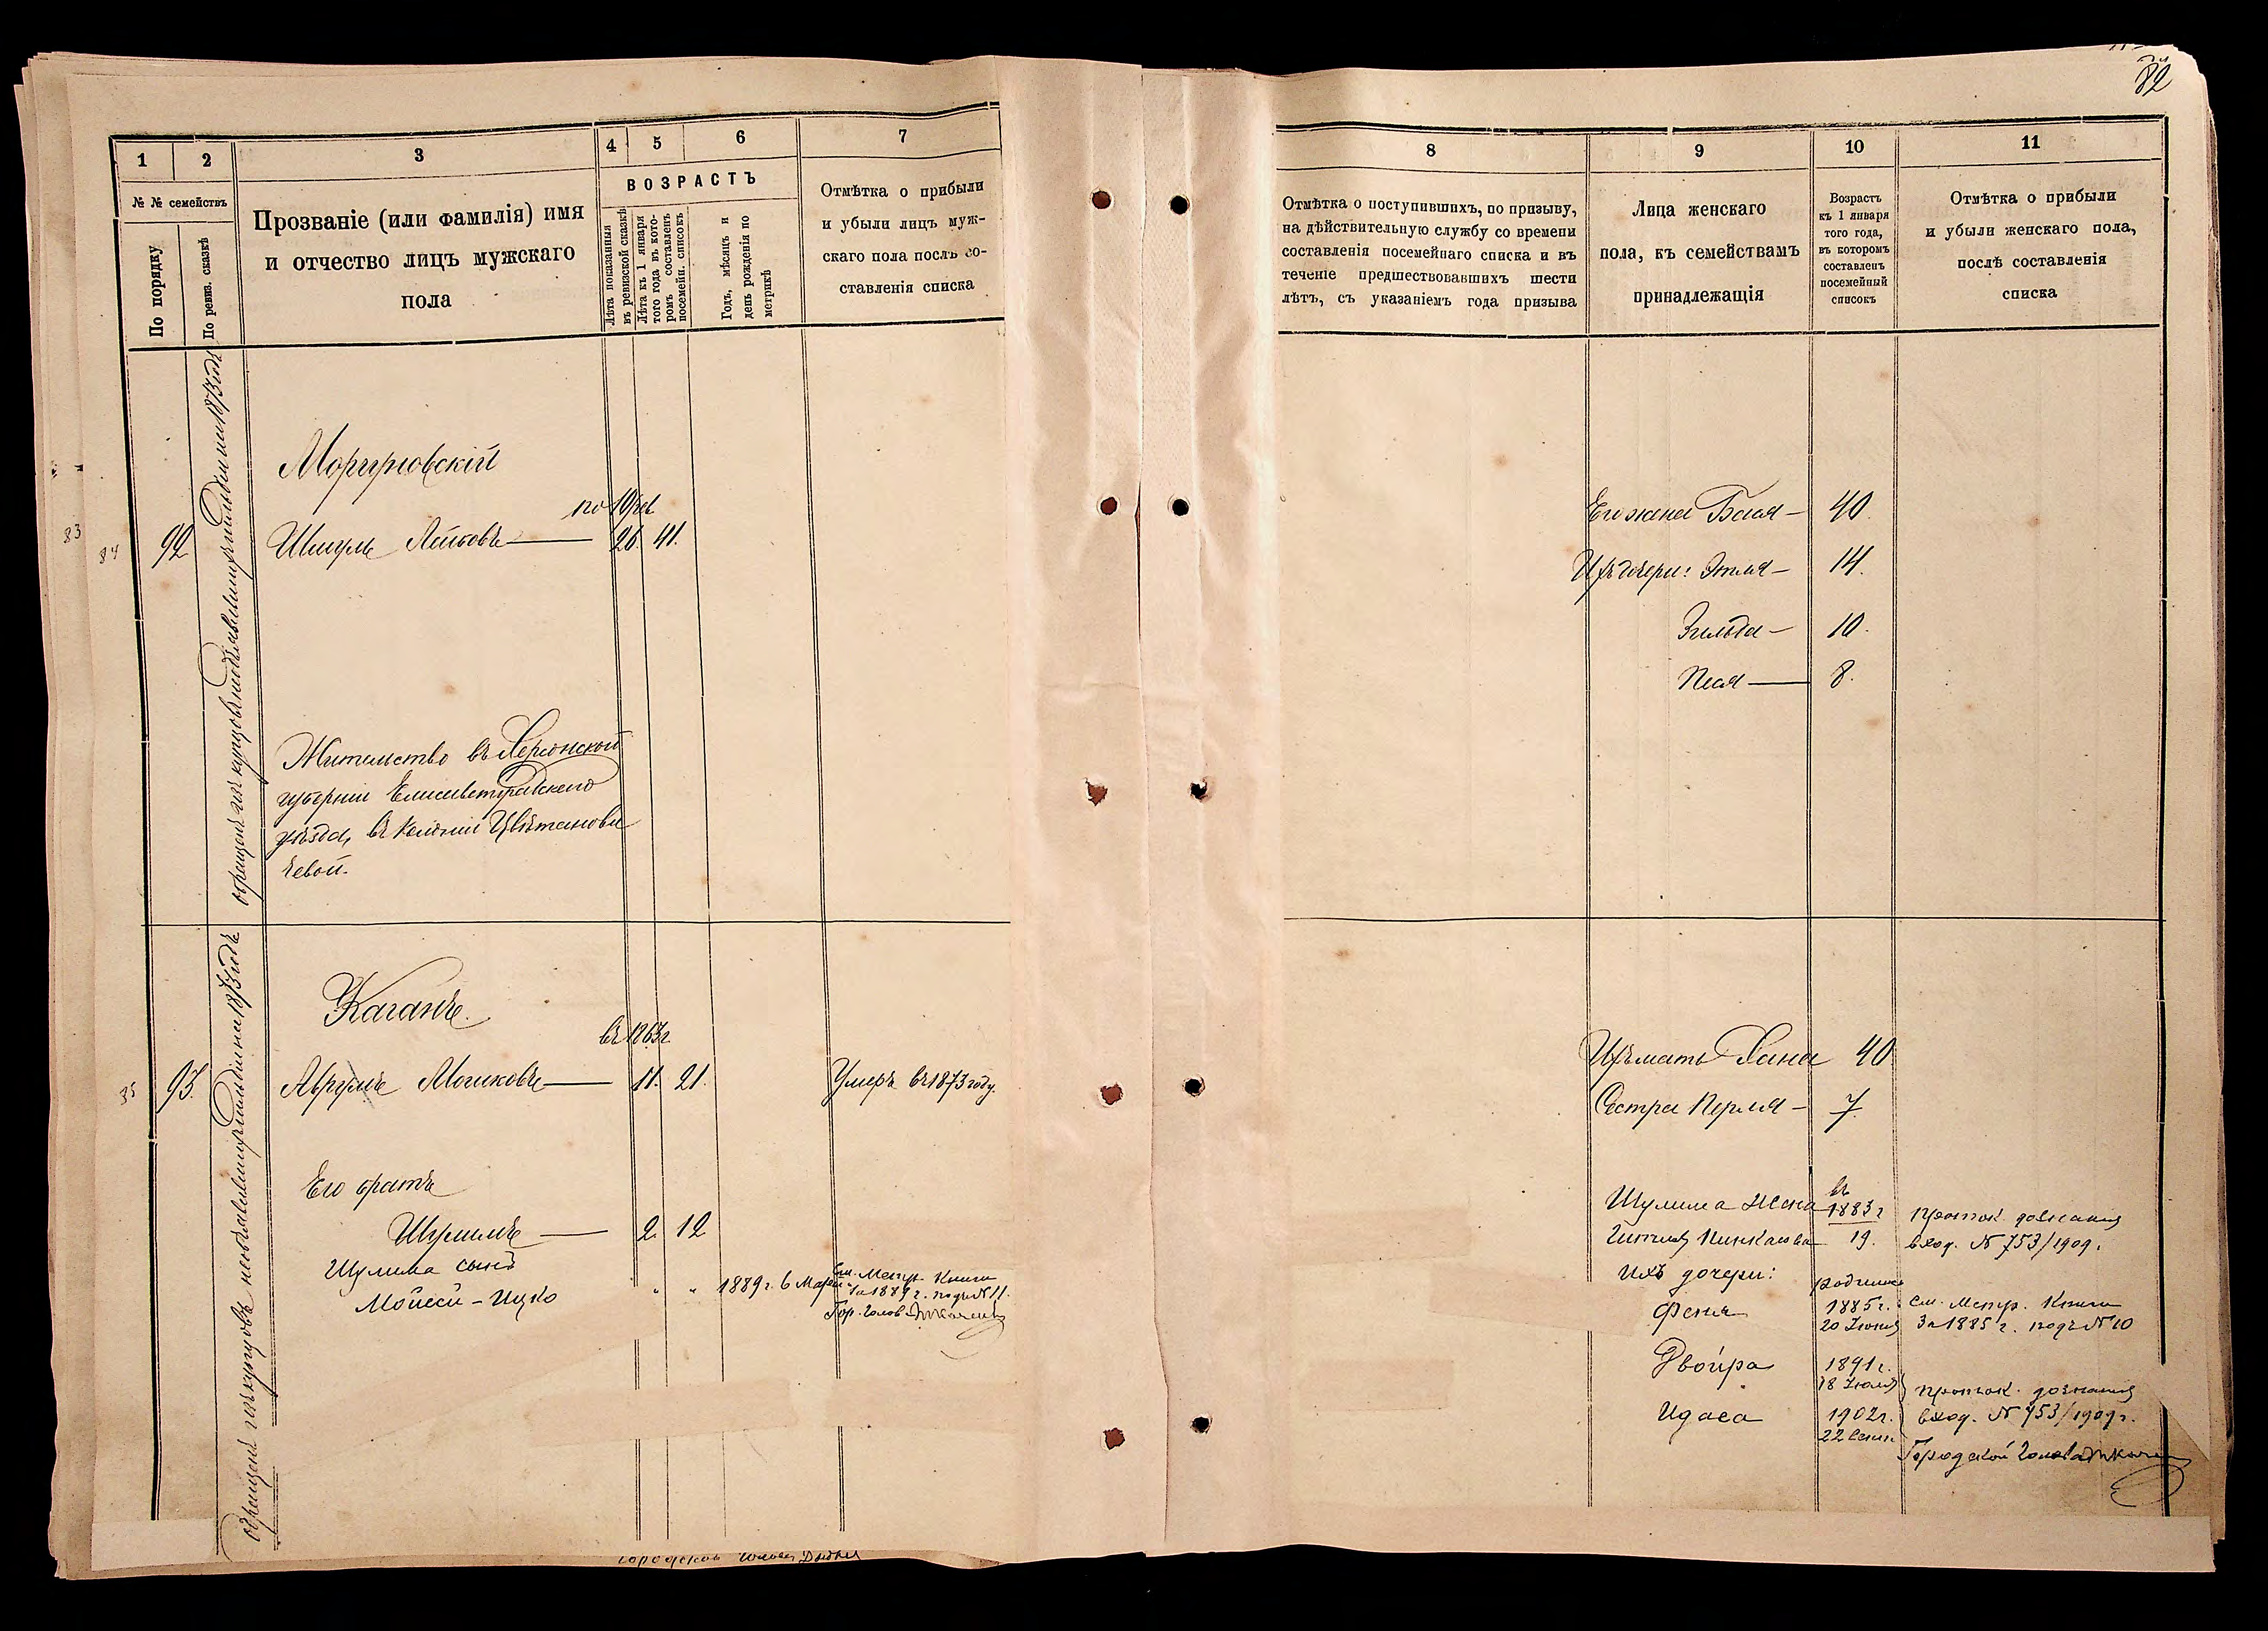 82
1
2
3
4
5
6
7
№ № семействъ
По порядку
По ревиз. сказкѣ
Прозваніе (или фамилія) имя
и отчество лицъ мужскаго
пола
ВОЗРАСТЪ
Лѣта показанныя
въ ревизской сказкѣ
Лѣта къ 1 января
того года въ кото-
ромъ составленъ
посемейн. списокъ
Годъ, мѣсяцъ и
день рожденія по
метрикѣ
Отмѣтка о прибыли
и убыли лицъ муж-
скаго пола послѣ со-
ставленія списка
8
9
10
11
Отмѣтка о поступившихъ, по призыву,
на дѣйствительную службу со времени
составленія посемейнаго списка и въ
теченіе предшествовавшихъ шести
лѣтъ, съ указаніемъ года призыва
Лица женскаго
пола, къ семействамъ
принадлежащія
Возрастъ
къ 1 января
того года,
въ которомъ
составленъ
посемейный
списокъ
Отмѣтка о прибыли
и убыли женскаго пола,
послѣ составленія
списка
83
84
92
по 10 рев.
Шмуль Лейбовъ — 26. 41.
Жительство въ Херсонской
губерніи Елисаветградскаго
уѣзда, въ колоніи
чевой.
Его жена Бася — 40.
Ихъ дочери: Этля — 14.
Зильда — 10.
Песя — 8.
Каганъ.
въ 1863 г.
35
93.
Аврумъ Мошковъ — 11. 21.
Умеръ въ 1873 году.
Его братъ
Шулимъ — 2. 12
Шулима сынъ
Мойсей-Ицко " " 1889 г. 6 Марта
См. Метр. Книги
за 1889 г. подъ № 11.
Гор. Голова
Ихъ мать Хана 40
Сестра Перля — 7.
Шулима жена въ 1883 г
Пинкасова 19.
проток. дознанія
вход. № 753/1909.
Ихъ дочери: родились
Феня 1885 г.
20 Іюня
См. Метр. Книги
за 1885 г. подъ № 10
Двойра 1891 г.
18 Іюля
Идаса 1902 г.
22 Сент.
проток. дознанія
вход. № 753/1909 г.
Городской Голова
Городской Голова